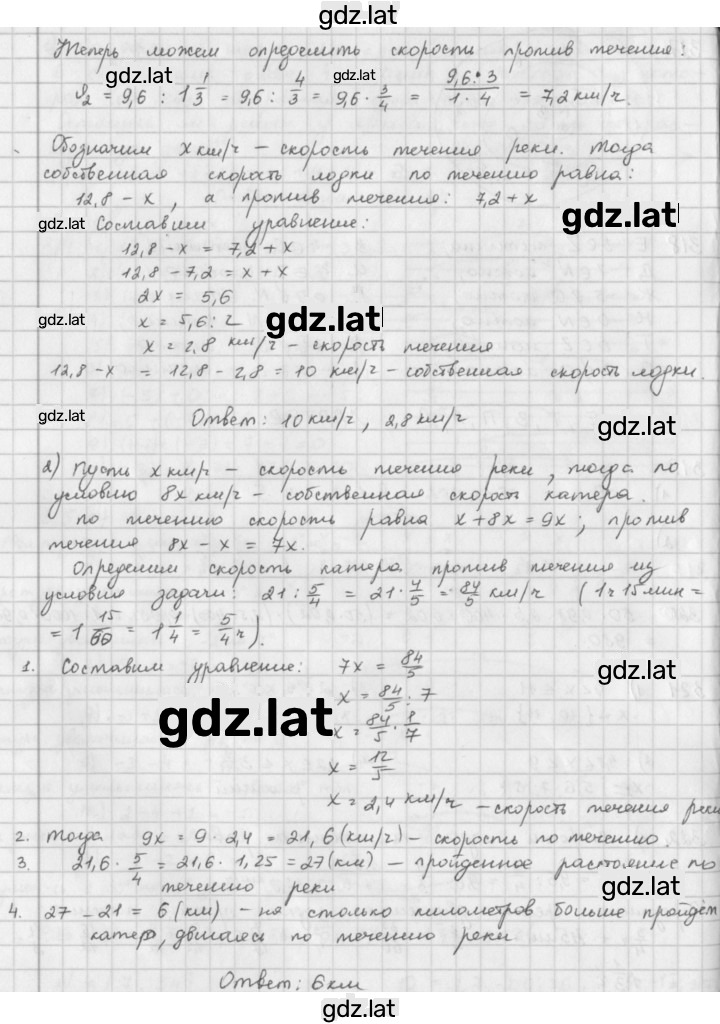 gdz.lat
Теперь можем определить скорость против течения:
gdz.lat gdz.lat
υ₂ = 9,6 : 1 1/3 = 9,6 : 4/3 = 9,6 · 3/4 = 9,6 · 3 / 1 · 4 = 7,2 км/ч.
Обозначим x км/ч – скорость течения реки. Тогда
собственная скорость лодки по течению равна:
12,8 – x, а против течения: 7,2 + x
gdz.lat Составим уравнение: gdz.lat
12,8 – x = 7,2 + x
12,8 – 7,2 = x + x
2x = 5,6
gdz.lat x = 5,6 : 2 gdz.lat
x = 2,8 км/ч – скорость течения
12,8 – x = 12,8 – 2,8 = 10 км/ч – собственная скорость лодки.
gdz.lat Ответ: 10 км/ч, 2,8 км/ч gdz.lat
2) Пусть x км/ч – скорость течения реки, тогда по
условию 8x км/ч – собственная скорость катера.
По течению скорость равна x + 8x = 9x; против
течения 8x – x = 7x.
Определим скорость катера против течения из
условия задачи: 21 : 5/4 = 21 · 4/5 = 84/5 км/ч (1ч 15мин =
= 1 15/60 = 1 1/4 = 5/4 ч).
1. Составим уравнение: 7x = 84/5 gdz.lat
x = 84/5 : 7
gdz.lat x = 84/5 · 1/7
x = 12/5
x = 2,4 км/ч – скорость течения реки
2. Тогда 9x = 9 · 2,4 = 21,6 (км/ч) – скорость по течению.
3. 21,6 · 5/4 = 21,6 · 1,25 = 27 (км) – пройденное расстояние по
течению реки gdz.lat
4. 27 – 21 = 6 (км) – на столько километров больше пройдёт
катер, двигаясь по течению реки
Ответ: 6 км
gdz.lat